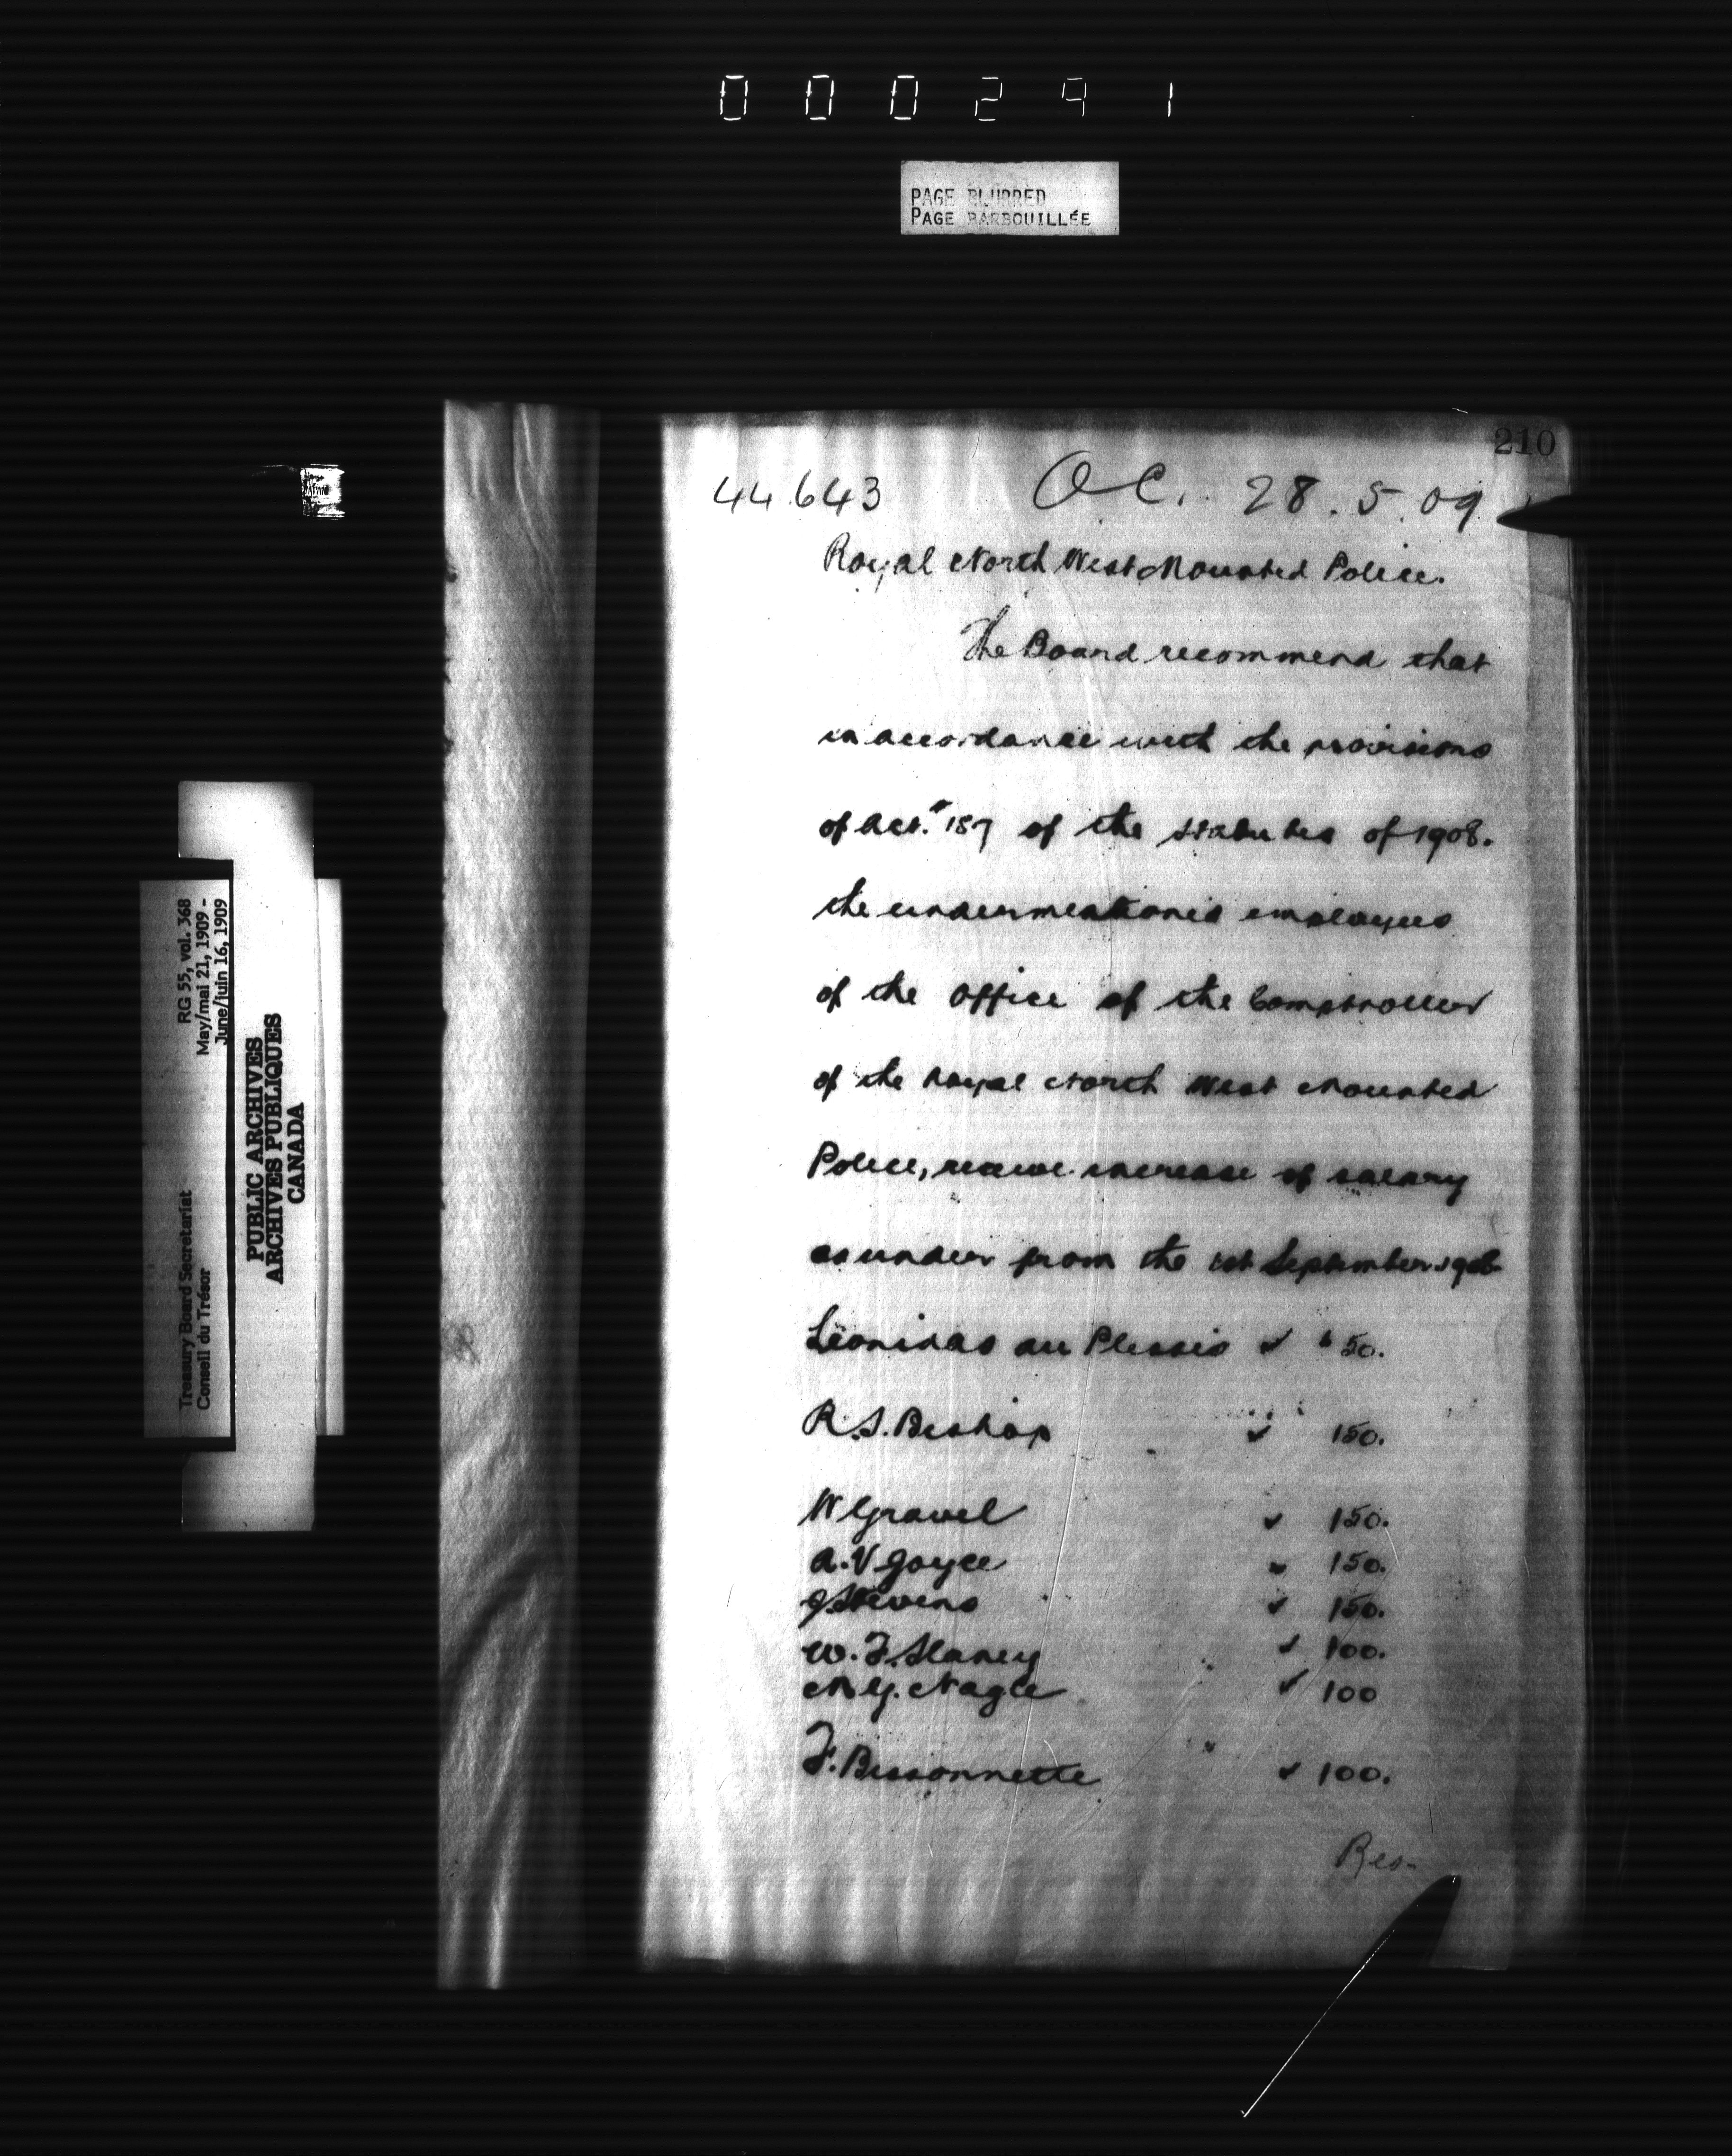 000291
PAGE BLURRED
PAGE BARBOUILLÉE
210
44643 O C. 28.5.09
Royal North West Mounted Police.
The Board recommend that
in accordance with the provisions
of Act. 187 of the statutes of 1908.
the undermentioned employees
of the Office of the Comptroller
of the Royal North West Mounted
Police, receive increase of salary
as under from the 1st September 1908
Leonidas du Plessis ✓ $50.
R.S. Bishop ✓ 150.
W Gravel ✓ 150.
A.V Joyce ✓ 150.
J Stevens ✓ 150.
W.F. Slaney ✓ 100.
M.G. Nagle ✓ 100
F. Bissonnette ✓ 100.
RG 55, vol. 368
May/mai 21, 1909 -
June/juin 16, 1909
Treasury Board Secretariat
Conseil du Trésor
PUBLIC ARCHIVES
ARCHIVES PUBLIQUES
CANADA